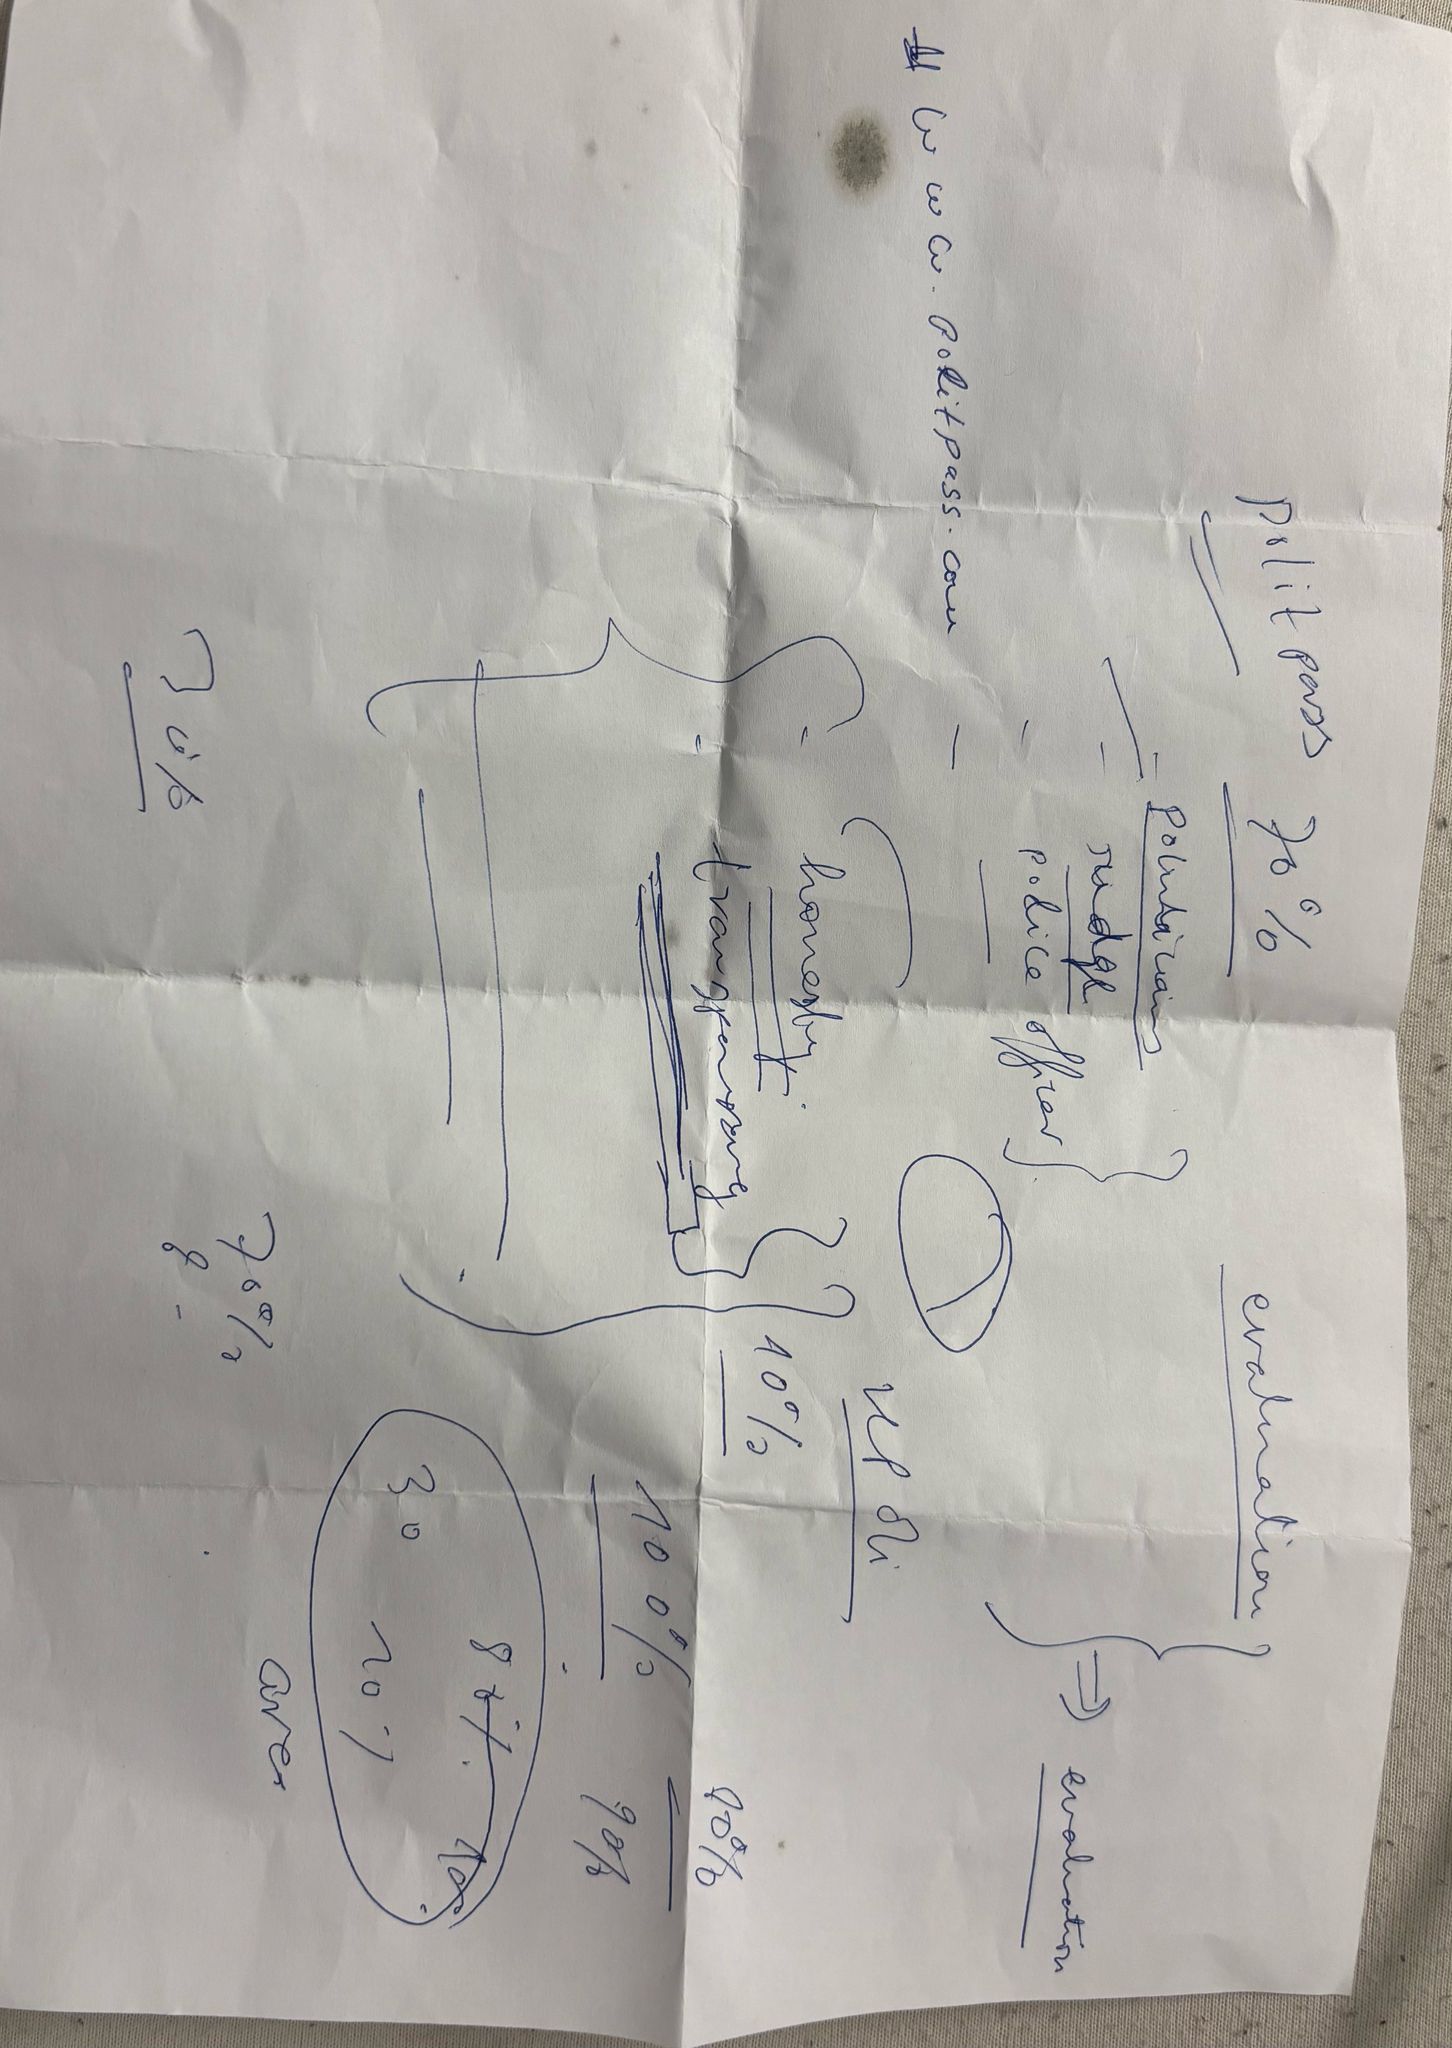 politpass 70%
evaluation
- politicians
- judge
- police officer
=> evaluation
www.politpass.com -
- honesty.
- transparency
10%
100%
90%
80%
30
10%
70%
8 -
30%